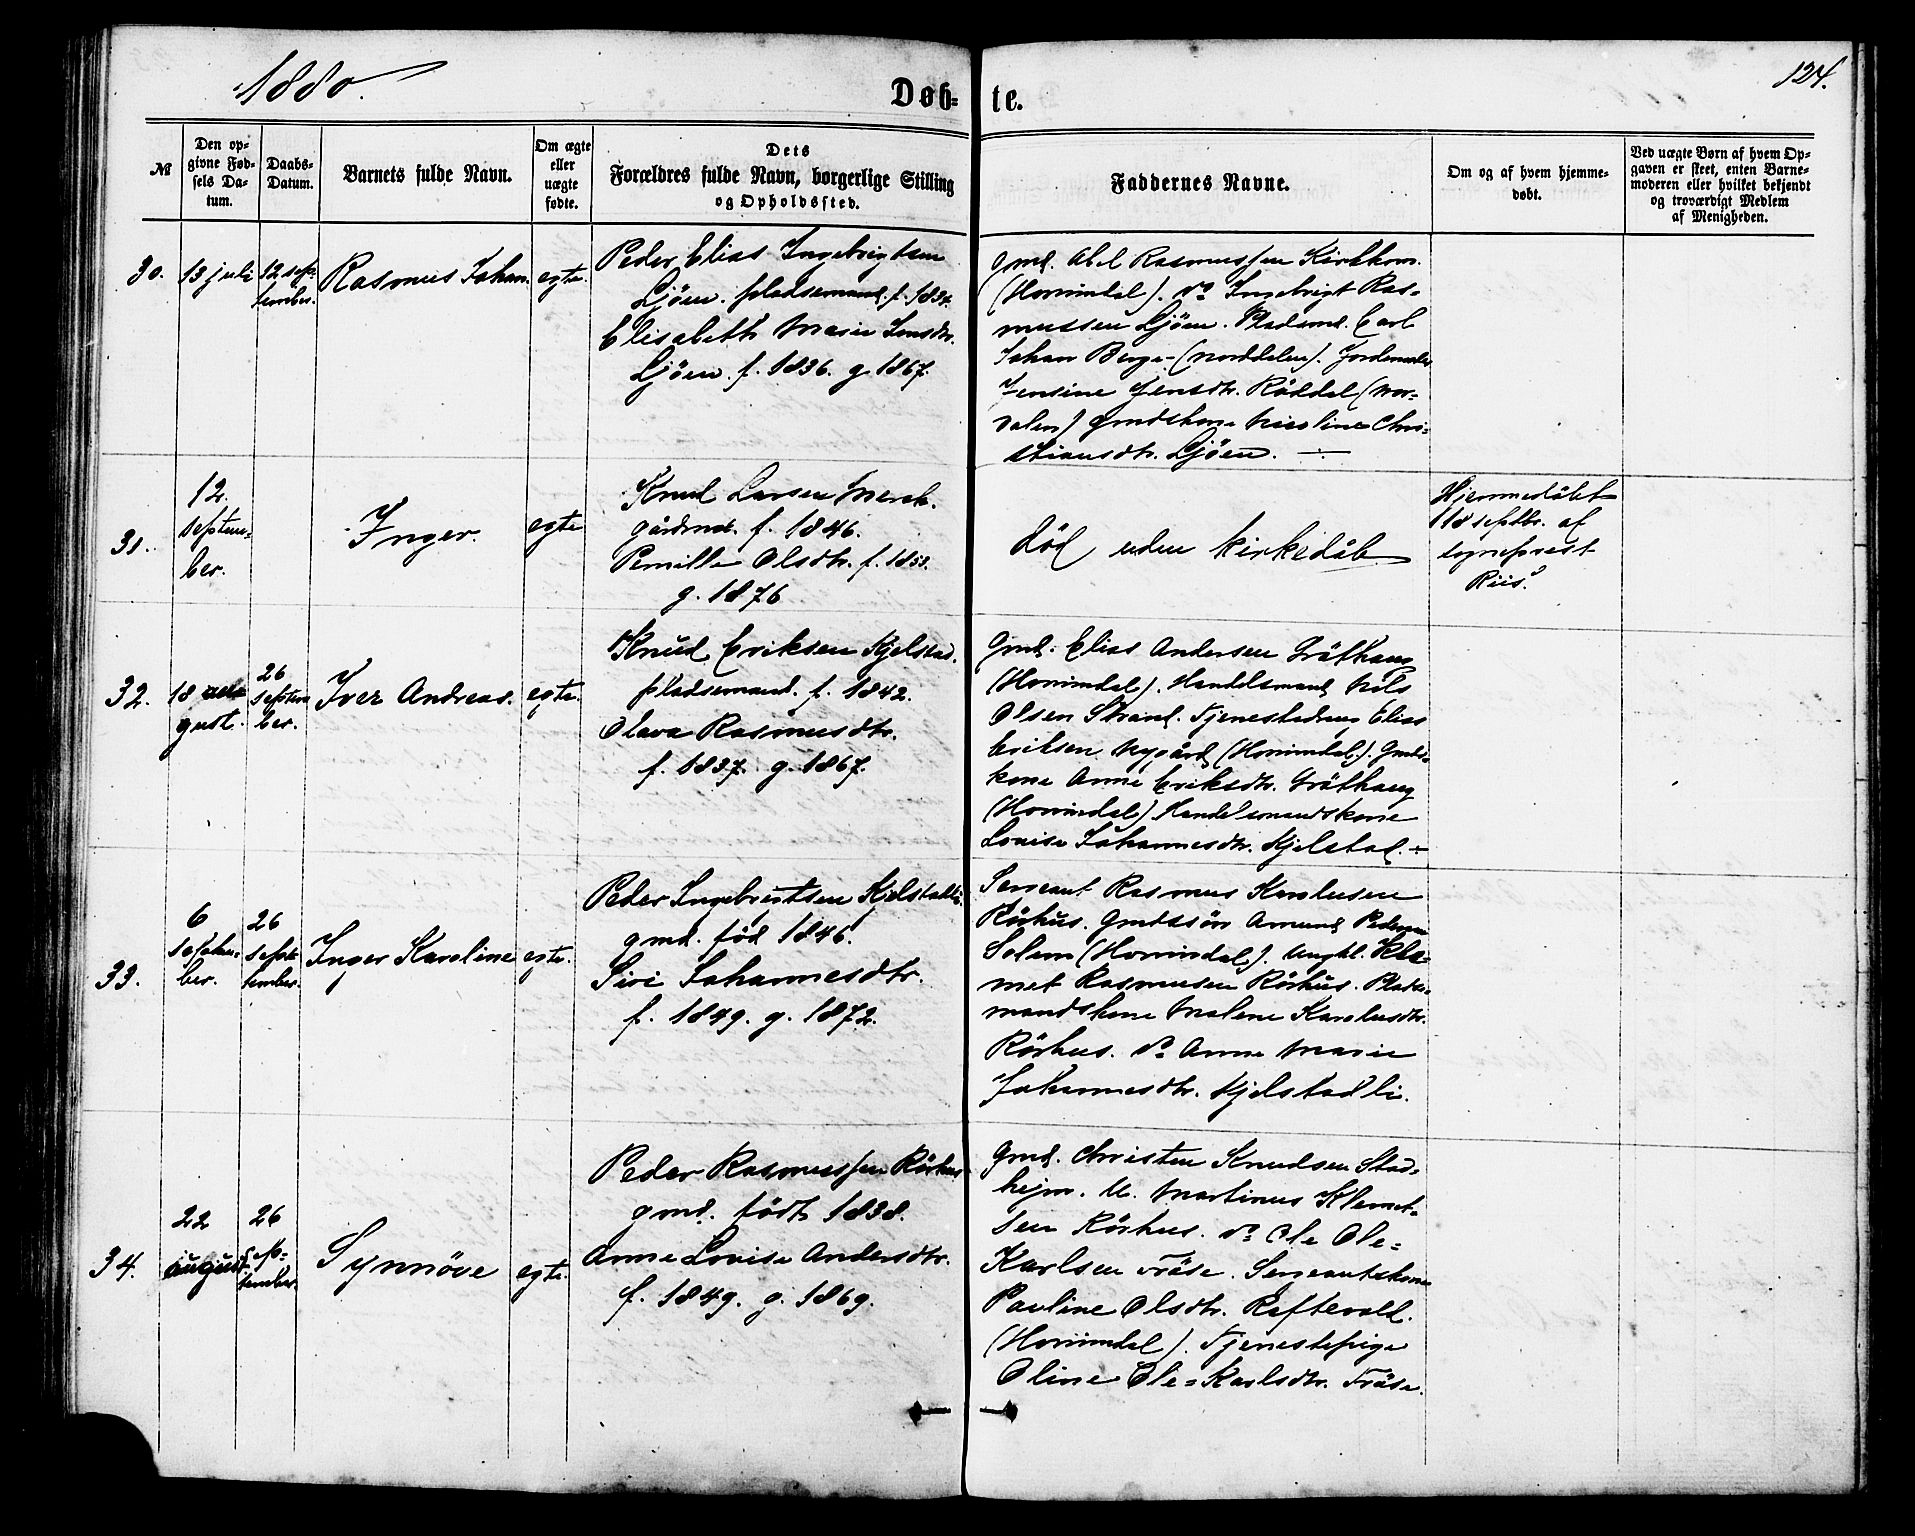 1880.
Døb-
te.
124.
№
Den op-
givne Fød-
sels Da-
tum.
Daabs-
Datum.
Barnets fulde Navn.
Om ægte
eller
uægte
fødte.
Dets
Forældres fulde Navn, borgerlige Stilling
og Opholdssted.
Faddernes Navne.
Om og af hvem hjemme-
døbt.
Ved uægte Børn af hvem Op-
gaven er skeet, enten Barne-
moderen eller hvilket bekjendt
og troværdigt Medlem
af Menigheden.
30.
13 juli
12 sep-
tember.
Rasmus Johan.
egte.
Peder Elias Ingebrigtsen
Ljöen. pladsemand. f. 1834.
Elisabeth Marie Jonsdtr.
Ljöen. f. 1836. g 1867.
gmd. Abel Rasmussen Kirkhorn.
(Hornindal). do Ingebrigt Ras-
mussen Ljöen. Pladsmd. Carl
Johan Berge (Norddalen). Jordemoder
Jensine Jensdtr. Röddal (Nor-
dalen) gmdskone Nicoline Chri-
stiansdtr. Ljöen.
31.
12.
septem-
ber.
Inger.
egte
Knud Larsen Merok.
gårdmd. f. 1846.
Pernille Olsdtr. f. 1853.
g. 1876
död uden kirkedåb
Hjemmedöbt
18 septbr. af
sogneprest
Riis.
32.
18 au-
gust.
26
septem
ber.
Iver Andreas.
egte.
Knud Eriksen Kjelstad.
pladsemand. f. 1842.
Olava Rasmusdtr.
f. 1837. g. 1867.
Gmd. Elias Andersen Tråthaug
(Hornindal). Handelsmand Nils
Olsen Strand. Tjenestedreng Elias
Eriksen Nygård (Hornindal). Gmds-
kone Anne Eriksdtr. Tråthaug
(Hornindal) Handelsmandskone
Louise Johannesdtr. Kjelstad.
33.
6
septem-
ber.
26
septe
tember.
Inger Karoline
egte.
Peder Ingebrigtsen Kjelstadli.
gmd. född 1846.
Siri Johannesdtr.
f. 1849. g. 1872.
Sergeant Rasmus Karolusen
Rörhus. Gmdssön Amund Pedersen
Solem (Hornindal). Ungkl. Kle-
met Rasmusen Rörhus. Plads-
mandskone Malene Karolusdtr.
Rörhus. do Anne Marie
Johannesdtr. Kjelstadli.
34.
22
august
26
sep-
tember.
Synnöve
egte.
Peder Rasmussen Rörhus
gmd. född 1838.
Anne Lovise Andersdtr.
f. 1849. g. 1869.
gmd. Christen Knudsen Stad-
hejm. U. Martinus Klemet-
sen Rörhus. do Ole Ole-
Karlsen Fröse. Sergeantskone
Pauline Olsdtr. Raftevold.
(Hornindal). Tjenestepige
Oline Ole-Karlsdtr. Fröse.